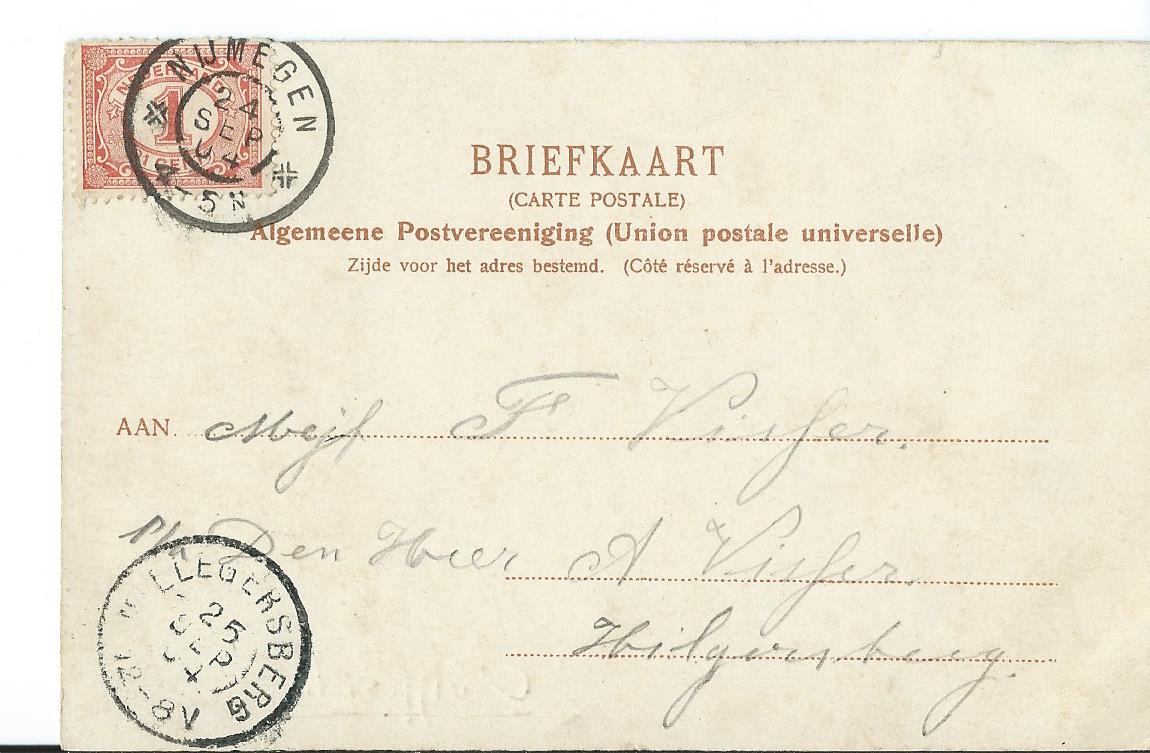 NEDERLAND
1
1 CENT
NIJMEGEN
24
SEP
4-5N
BRIEFKAART
(CARTE POSTALE)
Algemeene Postvereeniging (Union postale universelle)
Zijde voor het adres bestemd. (Côté réservé à l'adresse.)
AAN Mejf F Visser.
Den Heer A Visser.
Hilgersberg.
HILLEGERSBERG
25
SEP
8V